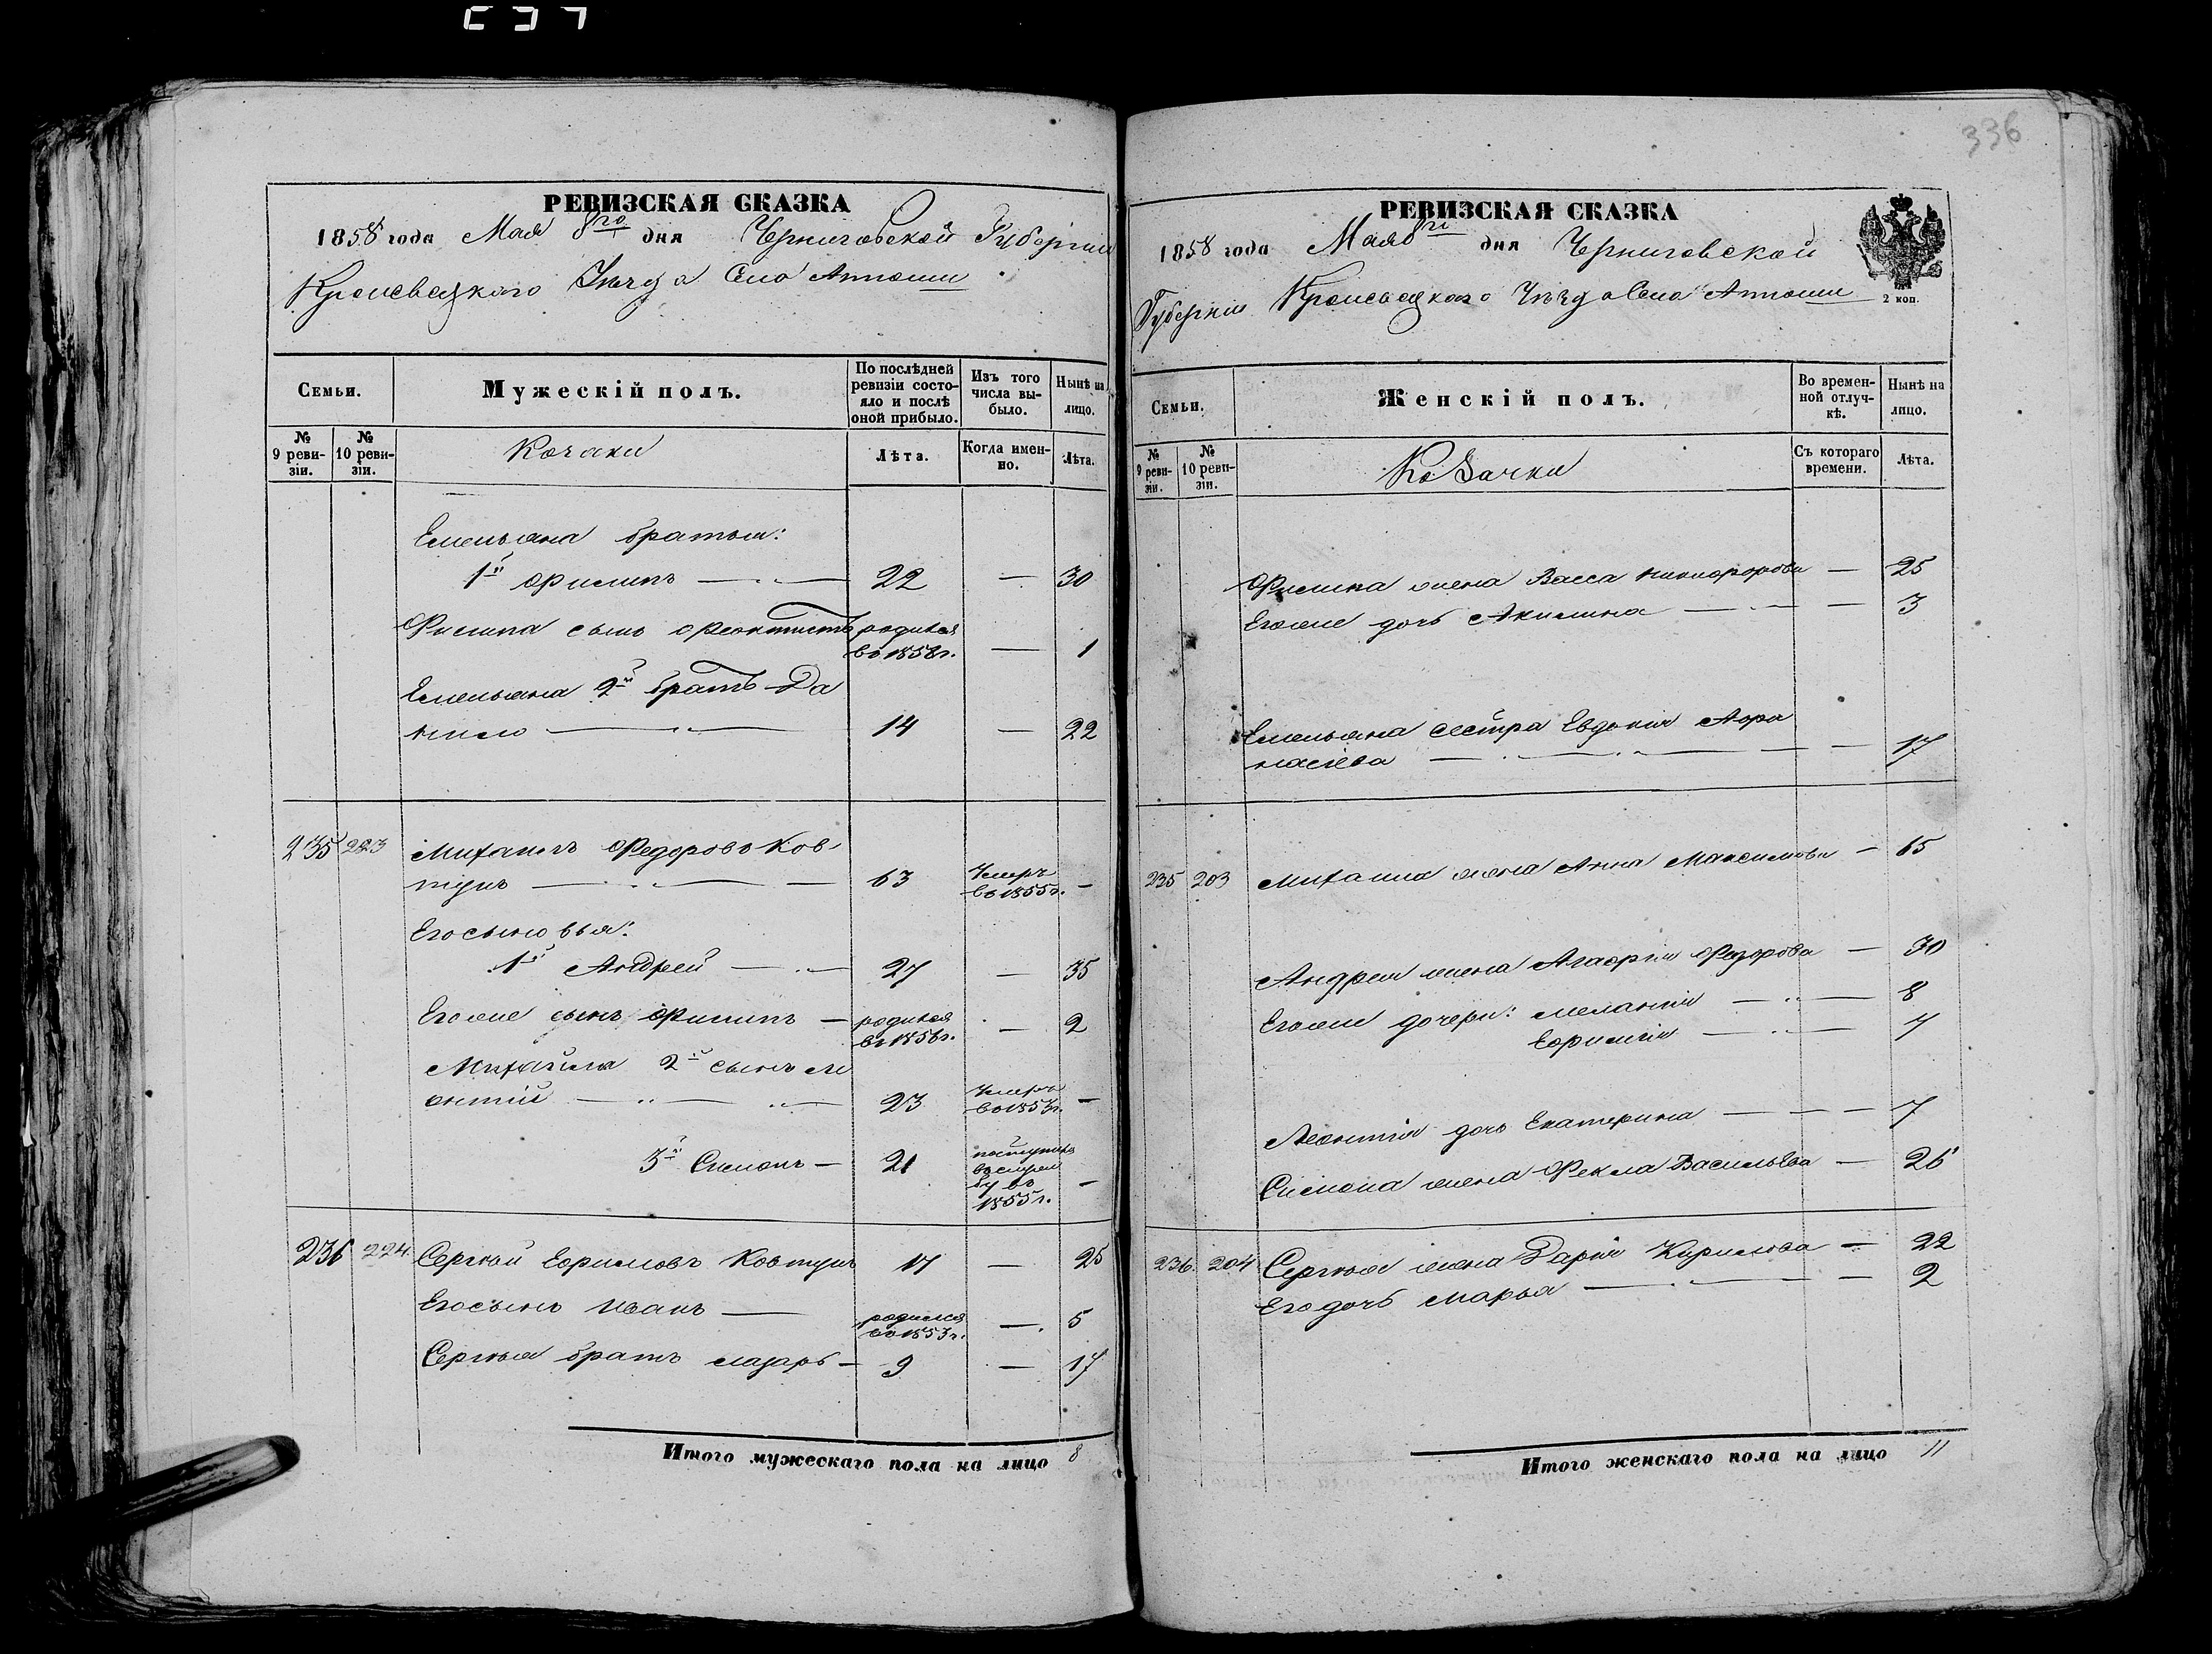 336
РЕВИЗСКАЯ СКАЗКА
1858 года Мая 8го дня Черниговской Губерніи
Кролевецкого Уѣзда Село Аттюши
Семьи.
Мужескій полъ.
По послѣдней ревизіи состояло и послѣ оной прибыло.
Изъ того числа выбыло.
Нынѣ на лицо.
№ 9 ревизіи.
№ 10 ревизіи.
Козаки
Лѣта.
Когда именно.
Лѣта.
Емельяна братья:
1й Филипъ — 22 — 30
Филипа сынъ Феоктистъ родился
въ 1858г. — 1
Емельяна 2й братъ Да
нило — 14 — 22
235 223 Михаилъ Федоровъ Ков
тунъ — 63 Умеръ въ 1855г. —
Его сыновья:
1й Андрей — 27 — 35
Его же сынъ Филипъ — родился въ 1856г. — 2
Михаила 2й сынъ Ле
онтій — 23 Умеръ въ 1853г. —
3й Симонъ — 21 поступилъ
въ 1855г. —
236 224 Сергѣй Ефимовъ Ковтунъ 17 — 25
Его сынъ Иванъ — родился въ 1853г. — 5
Сергѣя братъ Лазарь — 9 — 17
Итого мужескаго пола на лицо 8
РЕВИЗСКАЯ СКАЗКА
1858 года Мая 8го дня Черниговской
Губерніи Кролевецкаго Уѣзда Село Аттюши
2 коп.
Семьи.
Женскій полъ.
Во временной отлучкѣ.
Нынѣ на лицо.
№ 9 ревизіи.
№ 10 ревизіи.
Козачки
Съ котораго времени.
Лѣта.
Филипа жена Васса Никифорова — 25
Его же дочь Акилина — 3
Емельяна сестра Евдокія Афа
насіева — 17
235 203 Михаила жена Анна Максимова — 65
Андрея жена Агафія Федорова — 30
Его же дочери: Меланія — 8
Ефимія — 7
Леонтія дочь Екатерина — 7
Симона жена Фекла Васильева — 26
236. 204 Сергѣя жена Дарія Кирилова — 22
Его дочь Марья — 2
Итого женскаго пола на лицо 11